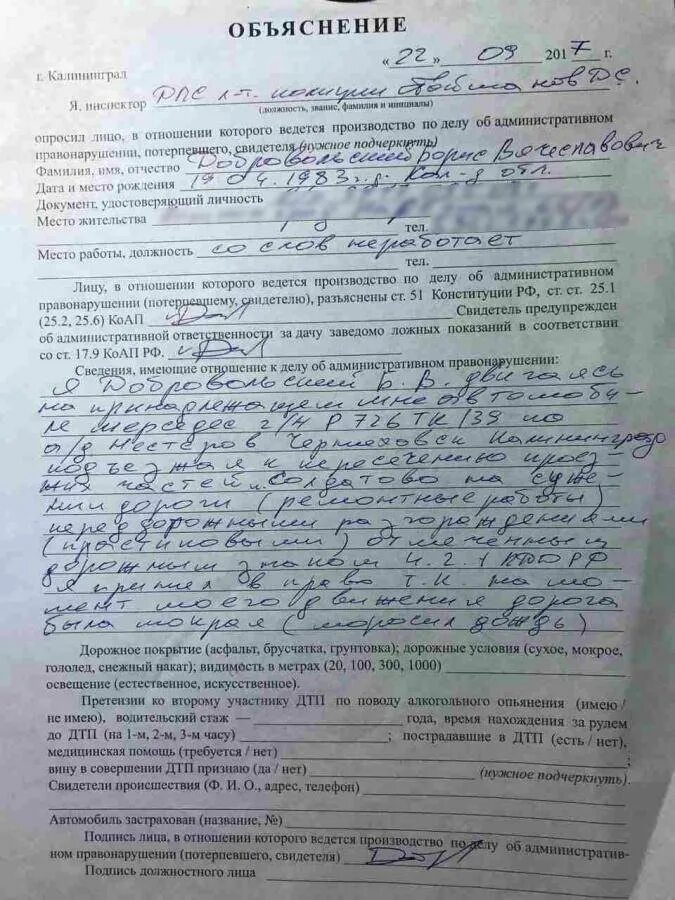 ОБЪЯСНЕНИЕ
«22» 09 2017 г.
г. Калининград
Я, инспектор ДПС л-т. полиции
(должность, звание, фамилия и инициалы)
опросил лицо, в отношении которого ведется производство по делу об административном
правонарушении, потерпевшего, свидетеля (нужное подчеркнуть)
Фамилия, имя, отчество Добровольский Борис Вячеславович
Дата и место рождения 19.04.1983 г.р. Кал-д обл.
Документ, удостоверяющий личность
Место жительства
тел.
Место работы, должность со слов неработает
тел.
Лицу, в отношении которого ведется производство по делу об административном
правонарушении (потерпевшему, свидетелю), разъяснены ст. 51 Конституции РФ, ст. ст. 25.1
(25.2, 25.6) КоАП Свидетель предупрежден
об административной ответственности за дачу заведомо ложных показаний в соответствии
со ст. 17.9 КоАП РФ.
Сведения, имеющие отношение к делу об административном правонарушении:
Я Добровольский Б. В. двигаясь
на принадлежащем мне автомоби-
ле мерседес г/н Р 726 ТК/39 по
а/д Нестеров Черняховск Калининград
подъезжая к пересечению проез-
жих частей п. Солдатово на суже-
нии дороги (ремонтные работы)
перед дорожными разгорождениями
(пластиковыми) отмеченным
дорожным знаком 4.2.1 ПДД РФ
я принял в право т.к. на мо-
мент моего движения дорога
была мокрая (моросил дождь)
Дорожное покрытие (асфальт, брусчатка, грунтовка); дорожные условия (сухое, мокрое,
гололед, снежный накат); видимость в метрах (20, 100, 300, 1000)
освещение (естественное, искусственное).
Претензии ко второму участнику ДТП по поводу алкогольного опьянения (имею /
не имею), водительский стаж — года, время нахождения за рулем
до ДТП (на 1-м, 2-м, 3-м часу) ; пострадавшие в ДТП (есть / нет),
медицинская помощь (требуется / нет) ;
вину в совершении ДТП признаю (да / нет) (нужное подчеркнуть).
Свидетели происшествия (Ф. И. О., адрес, телефон)
Автомобиль застрахован (название, №)
Подпись лица, в отношении которого ведется производство по делу об административ-
ном правонарушении (потерпевшего, свидетеля)
Подпись должностного лица